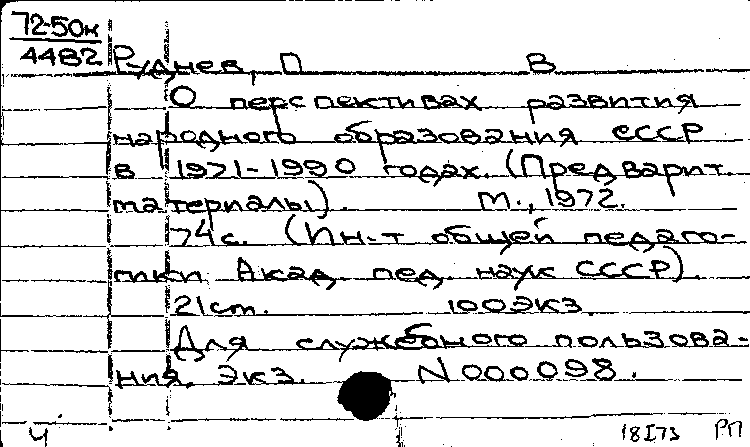 72-50к
4482
Руднев, П В
О перспективах развития
народного образования СССР
в 1971-1990 годах. (Предварит.
материалы). М., 1972.
74с. (Ин-т общей педаго-
гики Акад. пед. наук СССР).
21см. 100экз.
Для служебного пользова-
ния. Экз. N000098.
Ч 18I73 РП